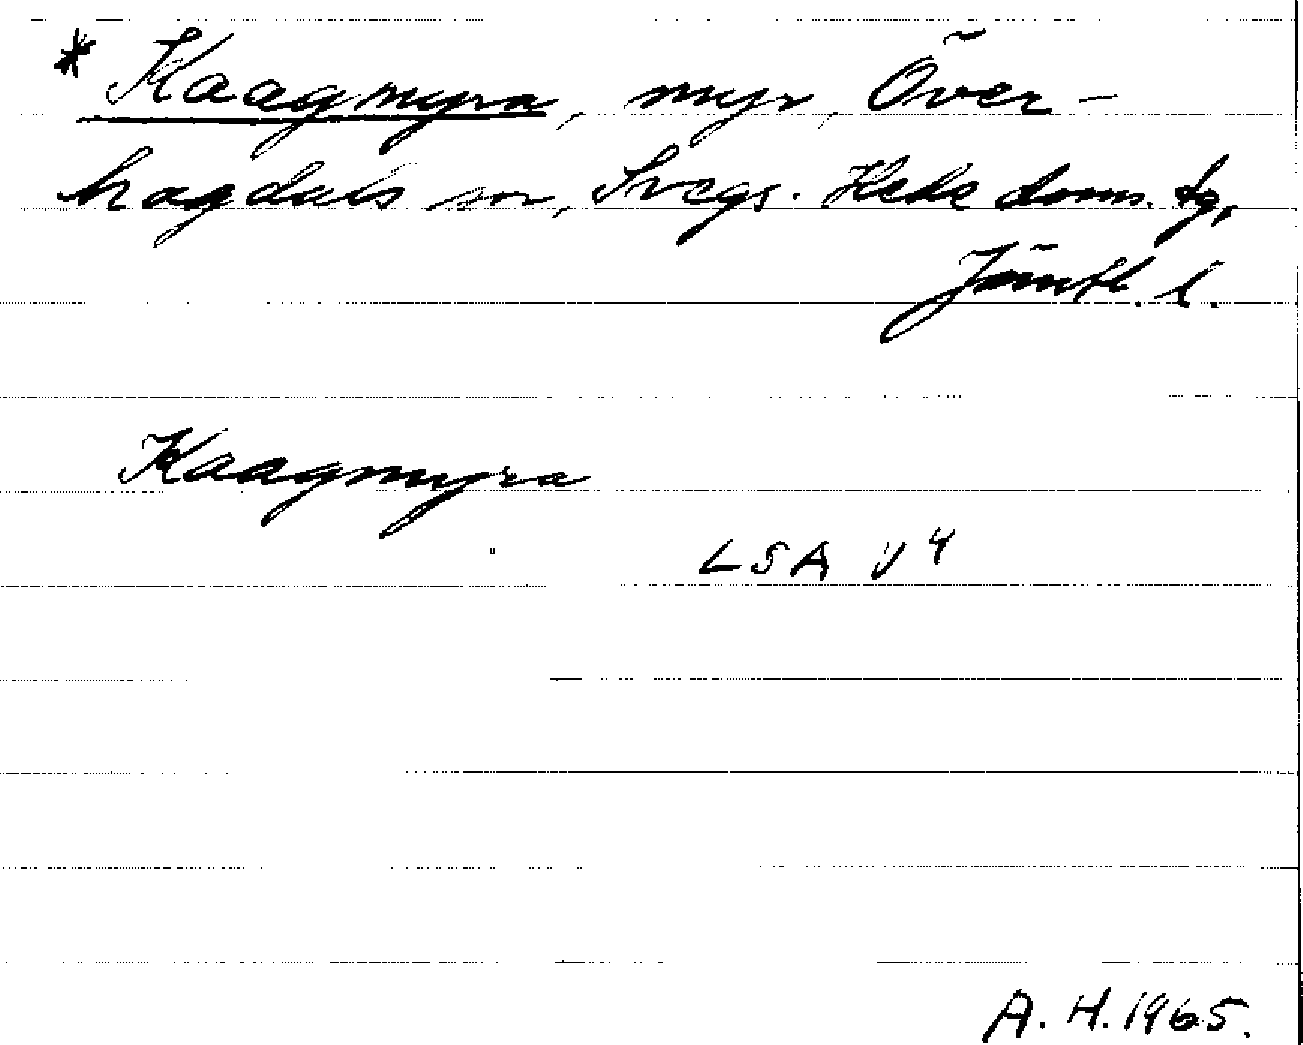 * Kaagmyra, myr, Över-
hogdals sn, Svegs. Heds doms. tg,
Jämtl. l.
Kaagmyra
LSA V4
A. H. 1965.